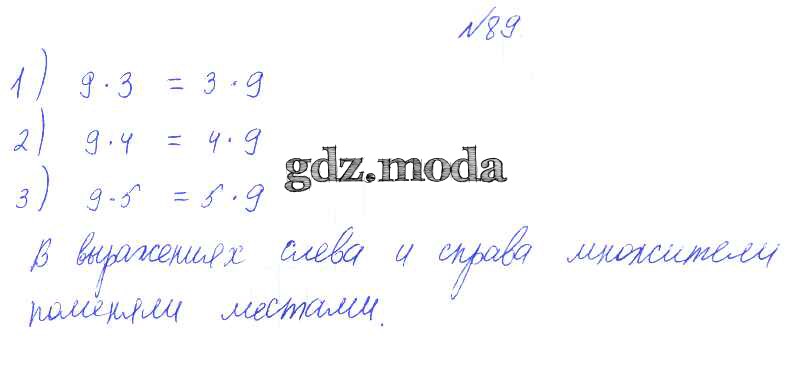 №89.
1) 9·3 = 3·9
2) 9·4 = 4·9
gdz.moda
3) 9·5 = 5·9
В выражениях слева и справа множители
поменяли местами.